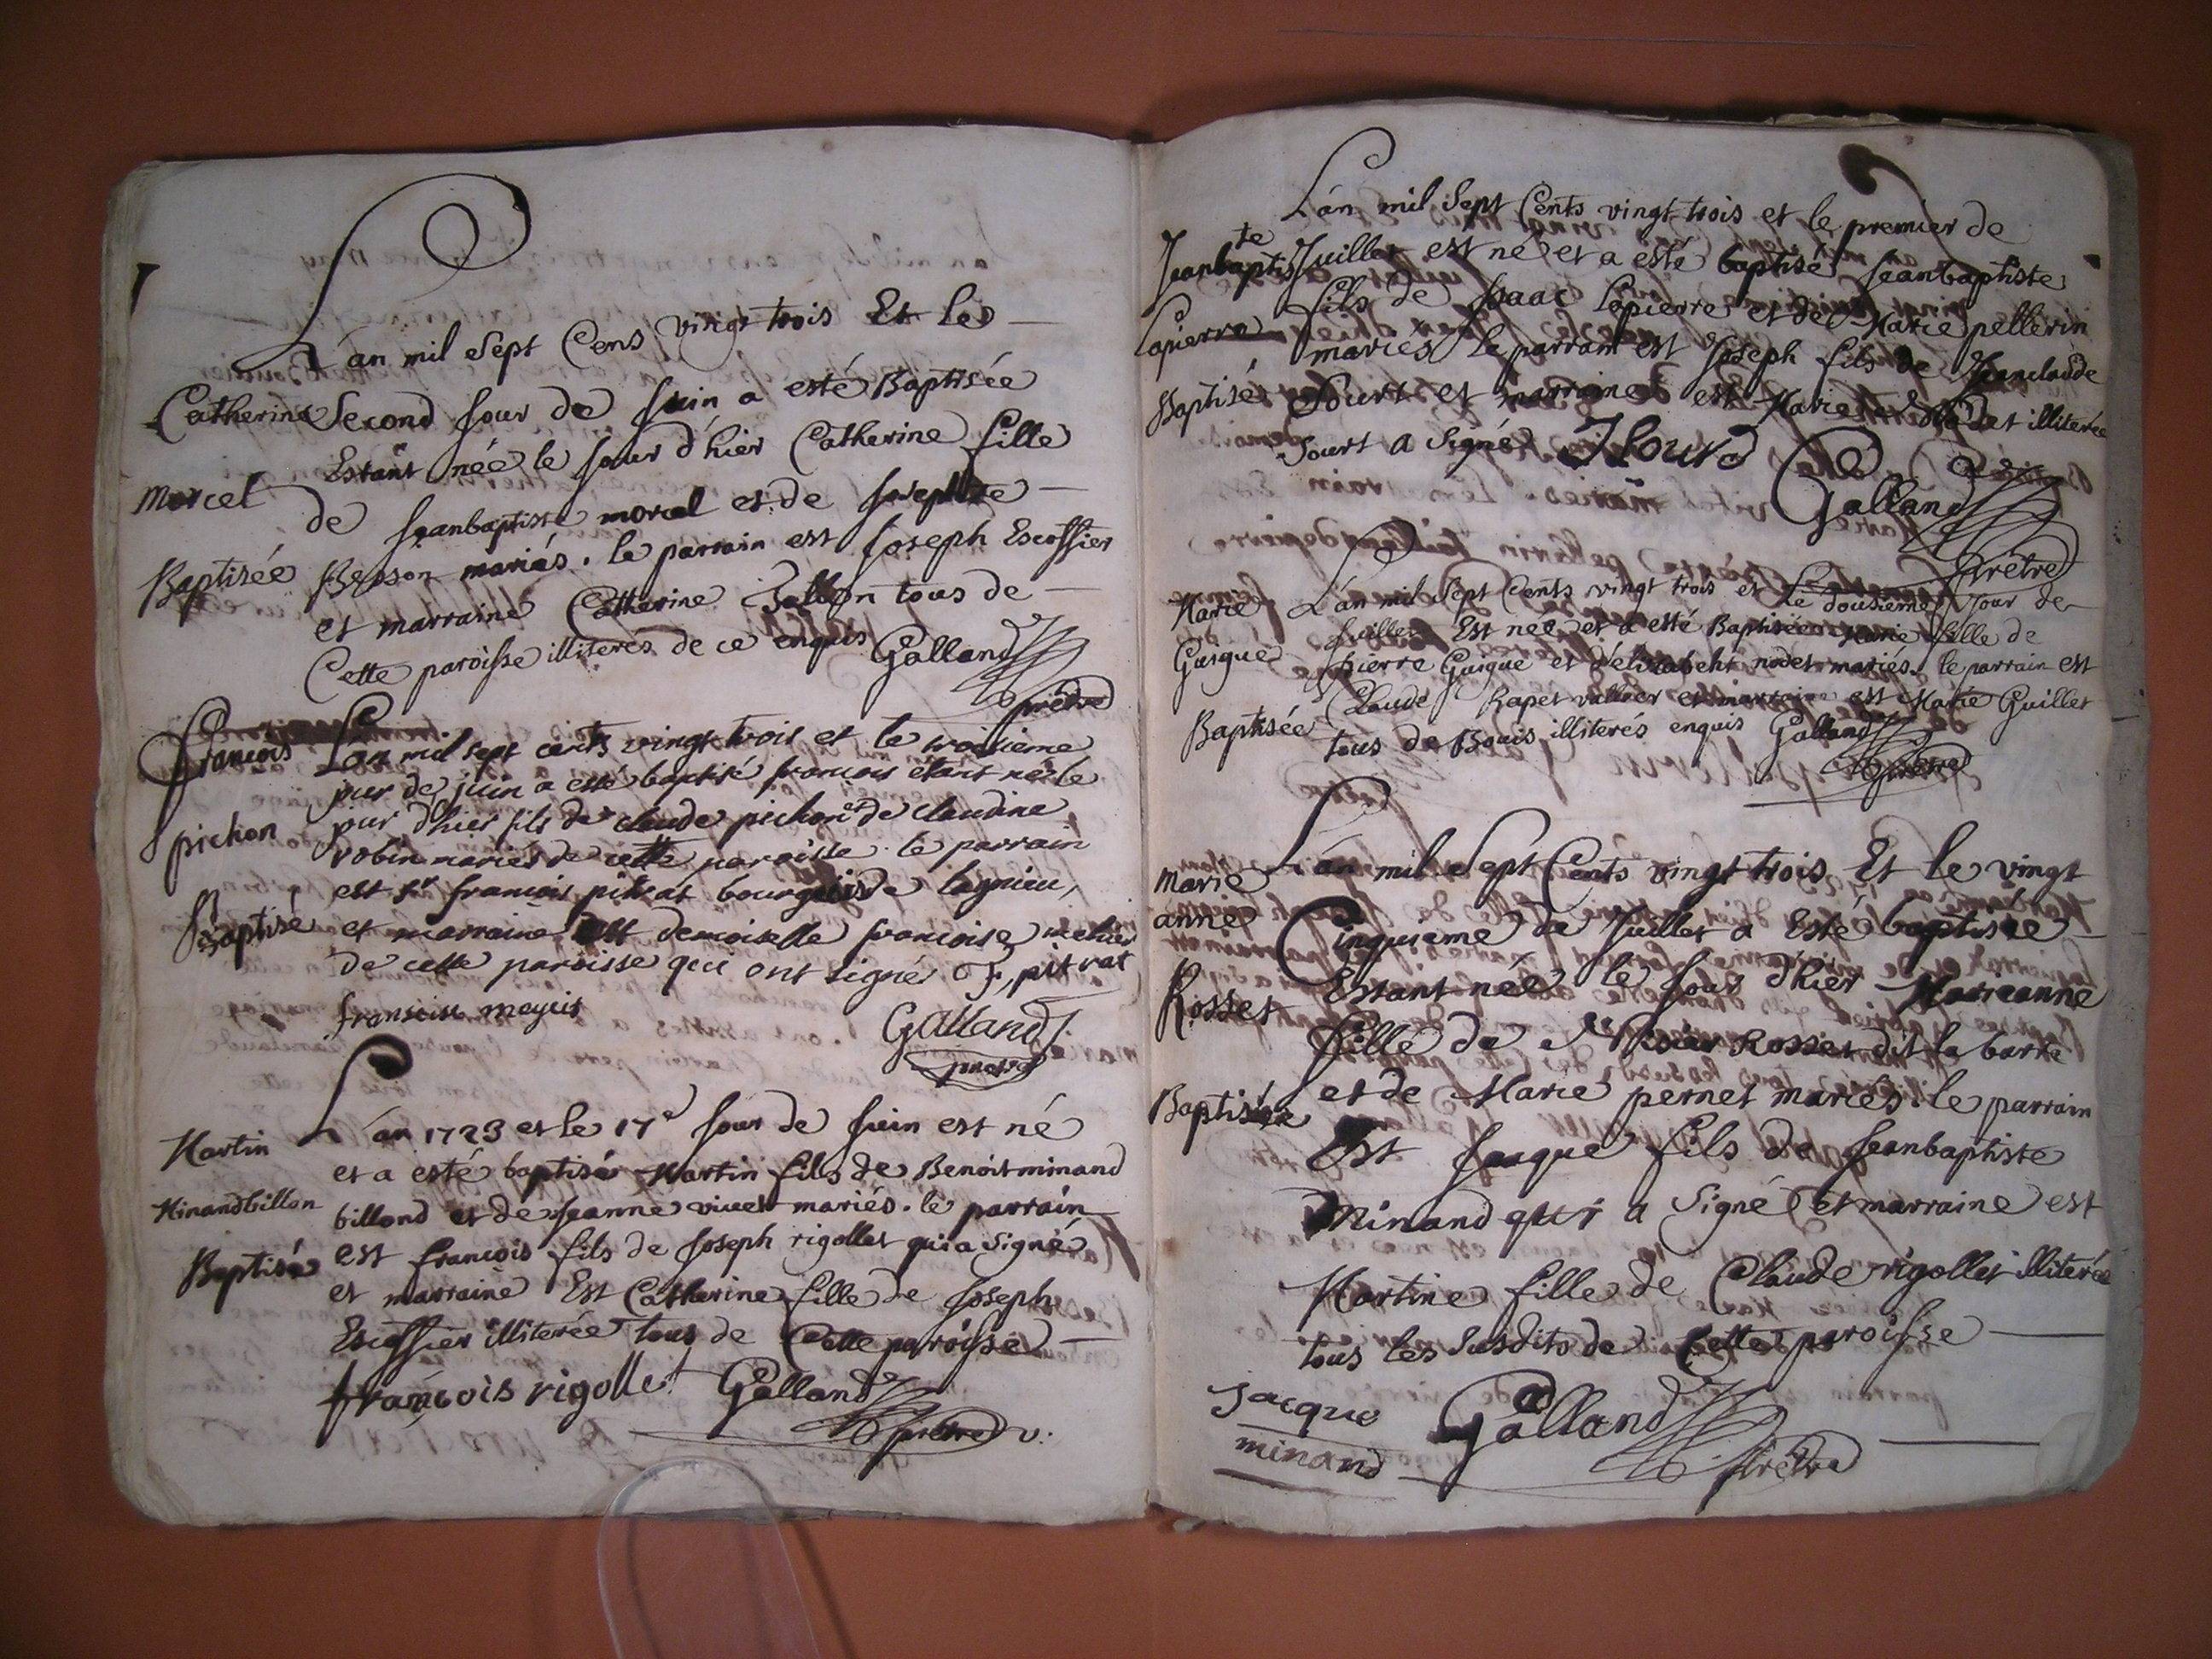 L'an mil Sept Cens vingt trois Et les
Catherine Second Jour de Juin a esté Baptisée
Estant née le Jour d'hier Catherine fille
morcel de Jeanbaptiste morcel et de Josephte
Baptisée Besson mariés. le parrain est Joseph Escoffier
et marraine Catherine tous de
Cette paroisse illiterés de ce enquis Galland
prêtre
François L'an mil sept cents vingt trois et le troisieme
jour de juin a esté baptisé francois étant né le
pichon jour d'hier fils de claude pichon et de claudine
robin mariés de cette paroisse le parrain
est sr francois pitrat bourgeois de lagnieu,
Baptisé et marraine est demoiselle francoise
de cette paroisse qui ont signé F, pitrat
Galland
prêtre
L'an 1723 et le 17e Jour de Juin est né
Martin et a esté baptisé Martin fils de Benoit minand
Minandbillon billond et de Jeanne vivet mariés. le parrain
Baptisé est francois fils de Joseph rigollet qui a Signé
et marraine Est Catherine fille de Joseph
Escoffier illiterée tous de Cette paroisse
françois rigollet Galland
prêtre v.
L'an mil Sept Cents vingt trois et le premier de
Jeanbaptiste Juillet est né et a esté baptisé Jeanbaptiste
Lapierre fils de Isaac Lapierre et de Marie pellerin
mariés le parrain est Joseph fils de Jeanclaude
Baptisé Sourt et marraine est Marie illiterée
Sourt a Signé
Galland
prêtre
Marie L'an mil Sept Cents vingt trois et Le dousieme Jour de
Juillet Est née et a esté Baptisée Marie fille de
Guigue pierre Guigue et d'elizabeht nodet mariés. le parrain est
Claude Rapet et marraine est Marie Guillet
Baptisée tous de Bouis illiterés enquis Galland
prêtre
L'an mil Sept Cents vingt trois Et le vingt
marie anne Cinquieme de Juillet a Esté baptisée
Estant née le Jour d'hier Marieanne
Rosset fille de Rosset dit la barre
Baptisée et de Marie pernet mariés. le parrain
Est Jaque fils de Jeanbaptiste
Minand qui a Signé et marraine est
Martine fille de Claude rigollet illiterée
tous les Susdits de Cette paroisse
Jacque Galland
minand prêtre